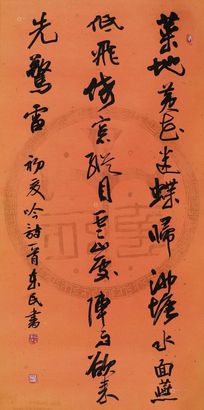 菜地黄花迷蝶归池塘水面燕
低飞倚窗纵目云山处阵雨欲来
先惊雷
初夏吟诗一首东民书